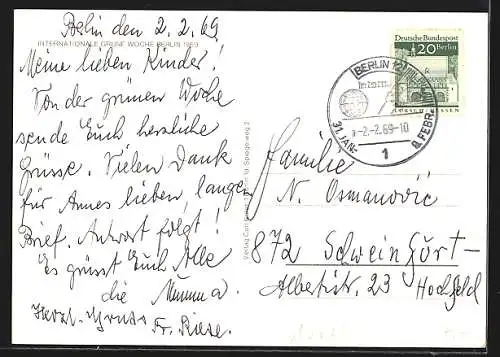 Berlin den 2.2.69.
INTERNATIONALE GRÜNE WOCHE BERLIN 1969
Meine lieben Kinder!
Von der grünen Woche
sende Euch herzliche
Grüsse. Vielen Dank
für Annes lieben, langen
Brief. Antwort folgt!
Es grüsst Euch Alle
die Mumma.
Herzl. Gruss Fr. Riese.
Verlag Carl
Deutsche Bundespost
20 Berlin
BERLIN 12
31. JAN.
-2.-2.69-10
8. FEBR.
1
Familie
N. Osmanović
872 Schweinfurt-
Albertistr. 23 Hochfeld